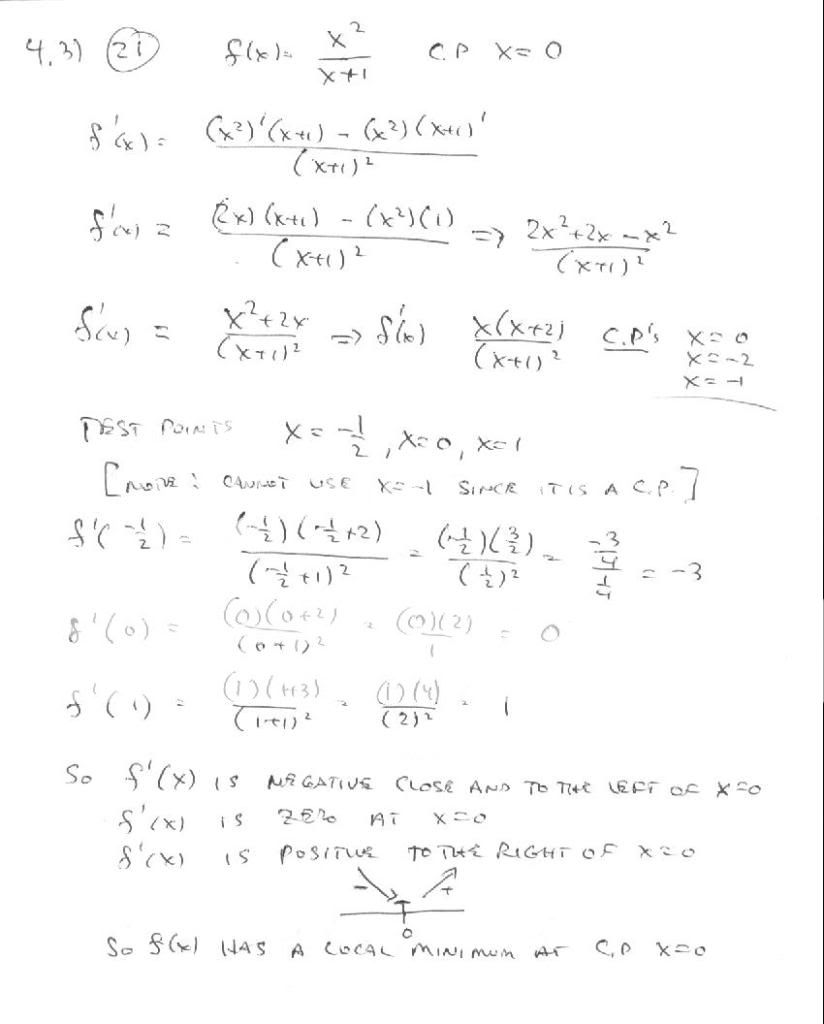 4.3) (21) f(x) = x²/(x+1) C.P X = 0
f'(x) = ((x²)'(x+1) - (x²)(x+1)')/(x+1)²
f'(x) = ((2x)(x+1) - (x²)(1))/(x+1)² => (2x²+2x-x²)/(x+1)²
f'(x) = (x²+2x)/(x+1)² => f'(x) x(x+2)/(x+1)² C.P's x=0
x=-2
x=-1
TEST POINTS X = -1/2, X=0, X=1
[NOTE: CANNOT USE X=-1 SINCE IT IS A C.P.]
f'(-1/2) = (-1/2)(-1/2+2)/(-1/2+1)² = (-1/2)(3/2)/(1/2)² = (-3/4)/(1/4) = -3
f'(0) = (0)(0+2)/(0+1)² = (0)(2)/1 = 0
f'(1) = (1)(1+3)/(1+1)² = (1)(4)/(2)² = 1
So f'(x) IS NEGATIVE CLOSE AND TO THE LEFT OF X=0
f'(x) IS ZERO AT X=0
f'(x) IS POSITIVE TO THE RIGHT OF X=0
- +
0
So f(x) HAS A LOCAL MINIMUM AT C.P X=0